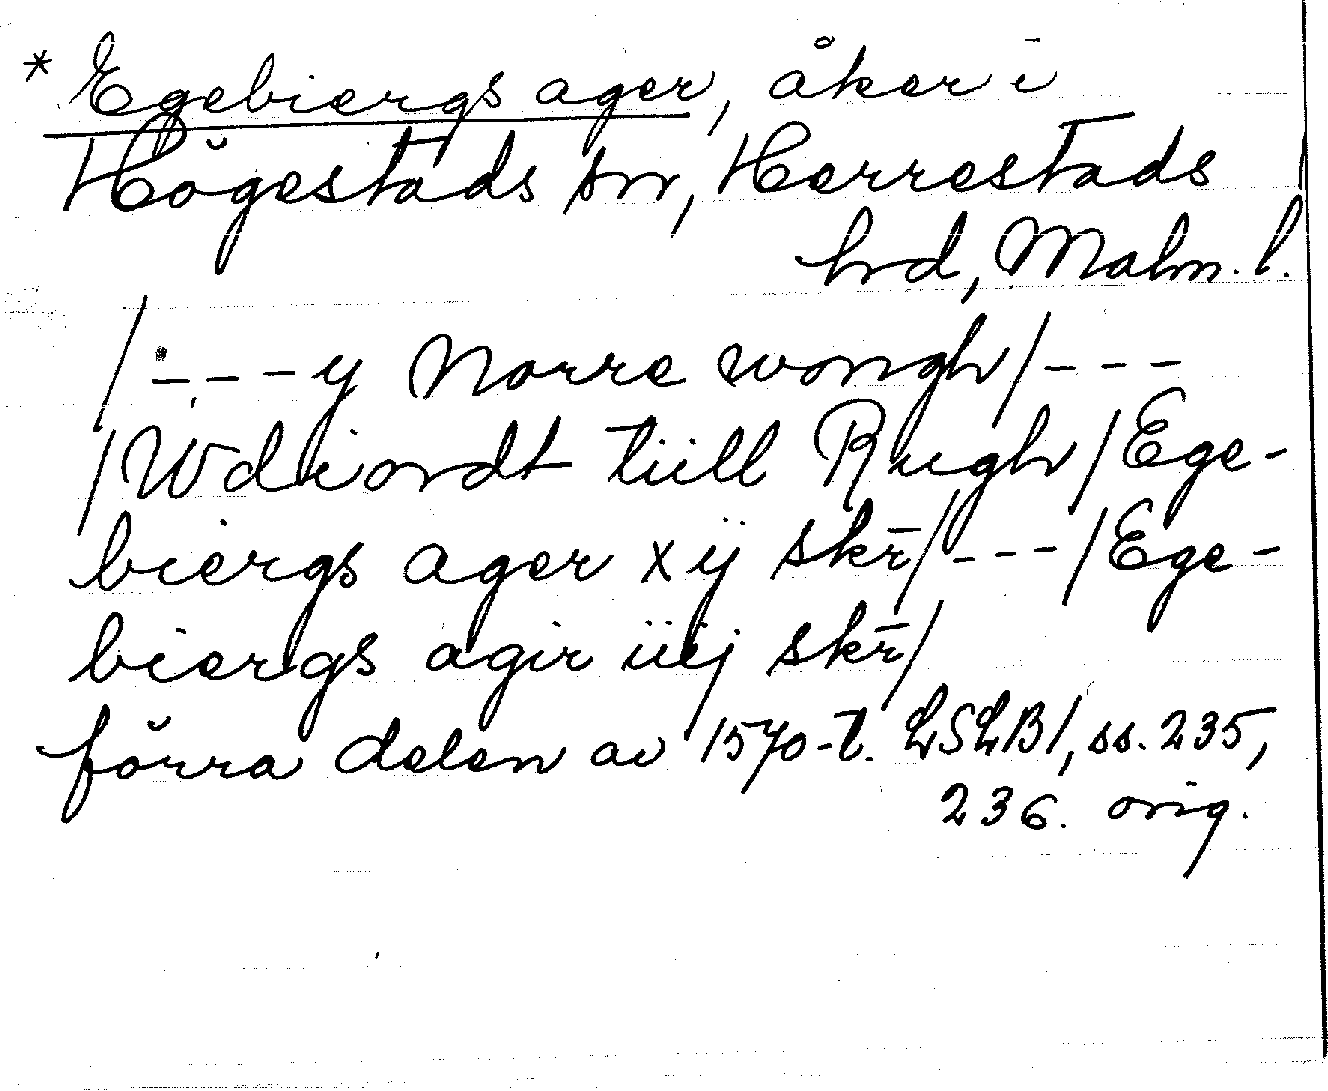 * Egebiergs ager, åker i
Högestads sn, Herrestads
hd, Malm. l.
/ - - - y Norre wongh / - - -
/ Wdiordt tiill Rugh / Ege-
biergs ager xij skr̄ / - - - / Ege-
biergs agir iiij skr̄ /
förra delen av 1570-t. LSLB1, ss. 235,
236. orig.